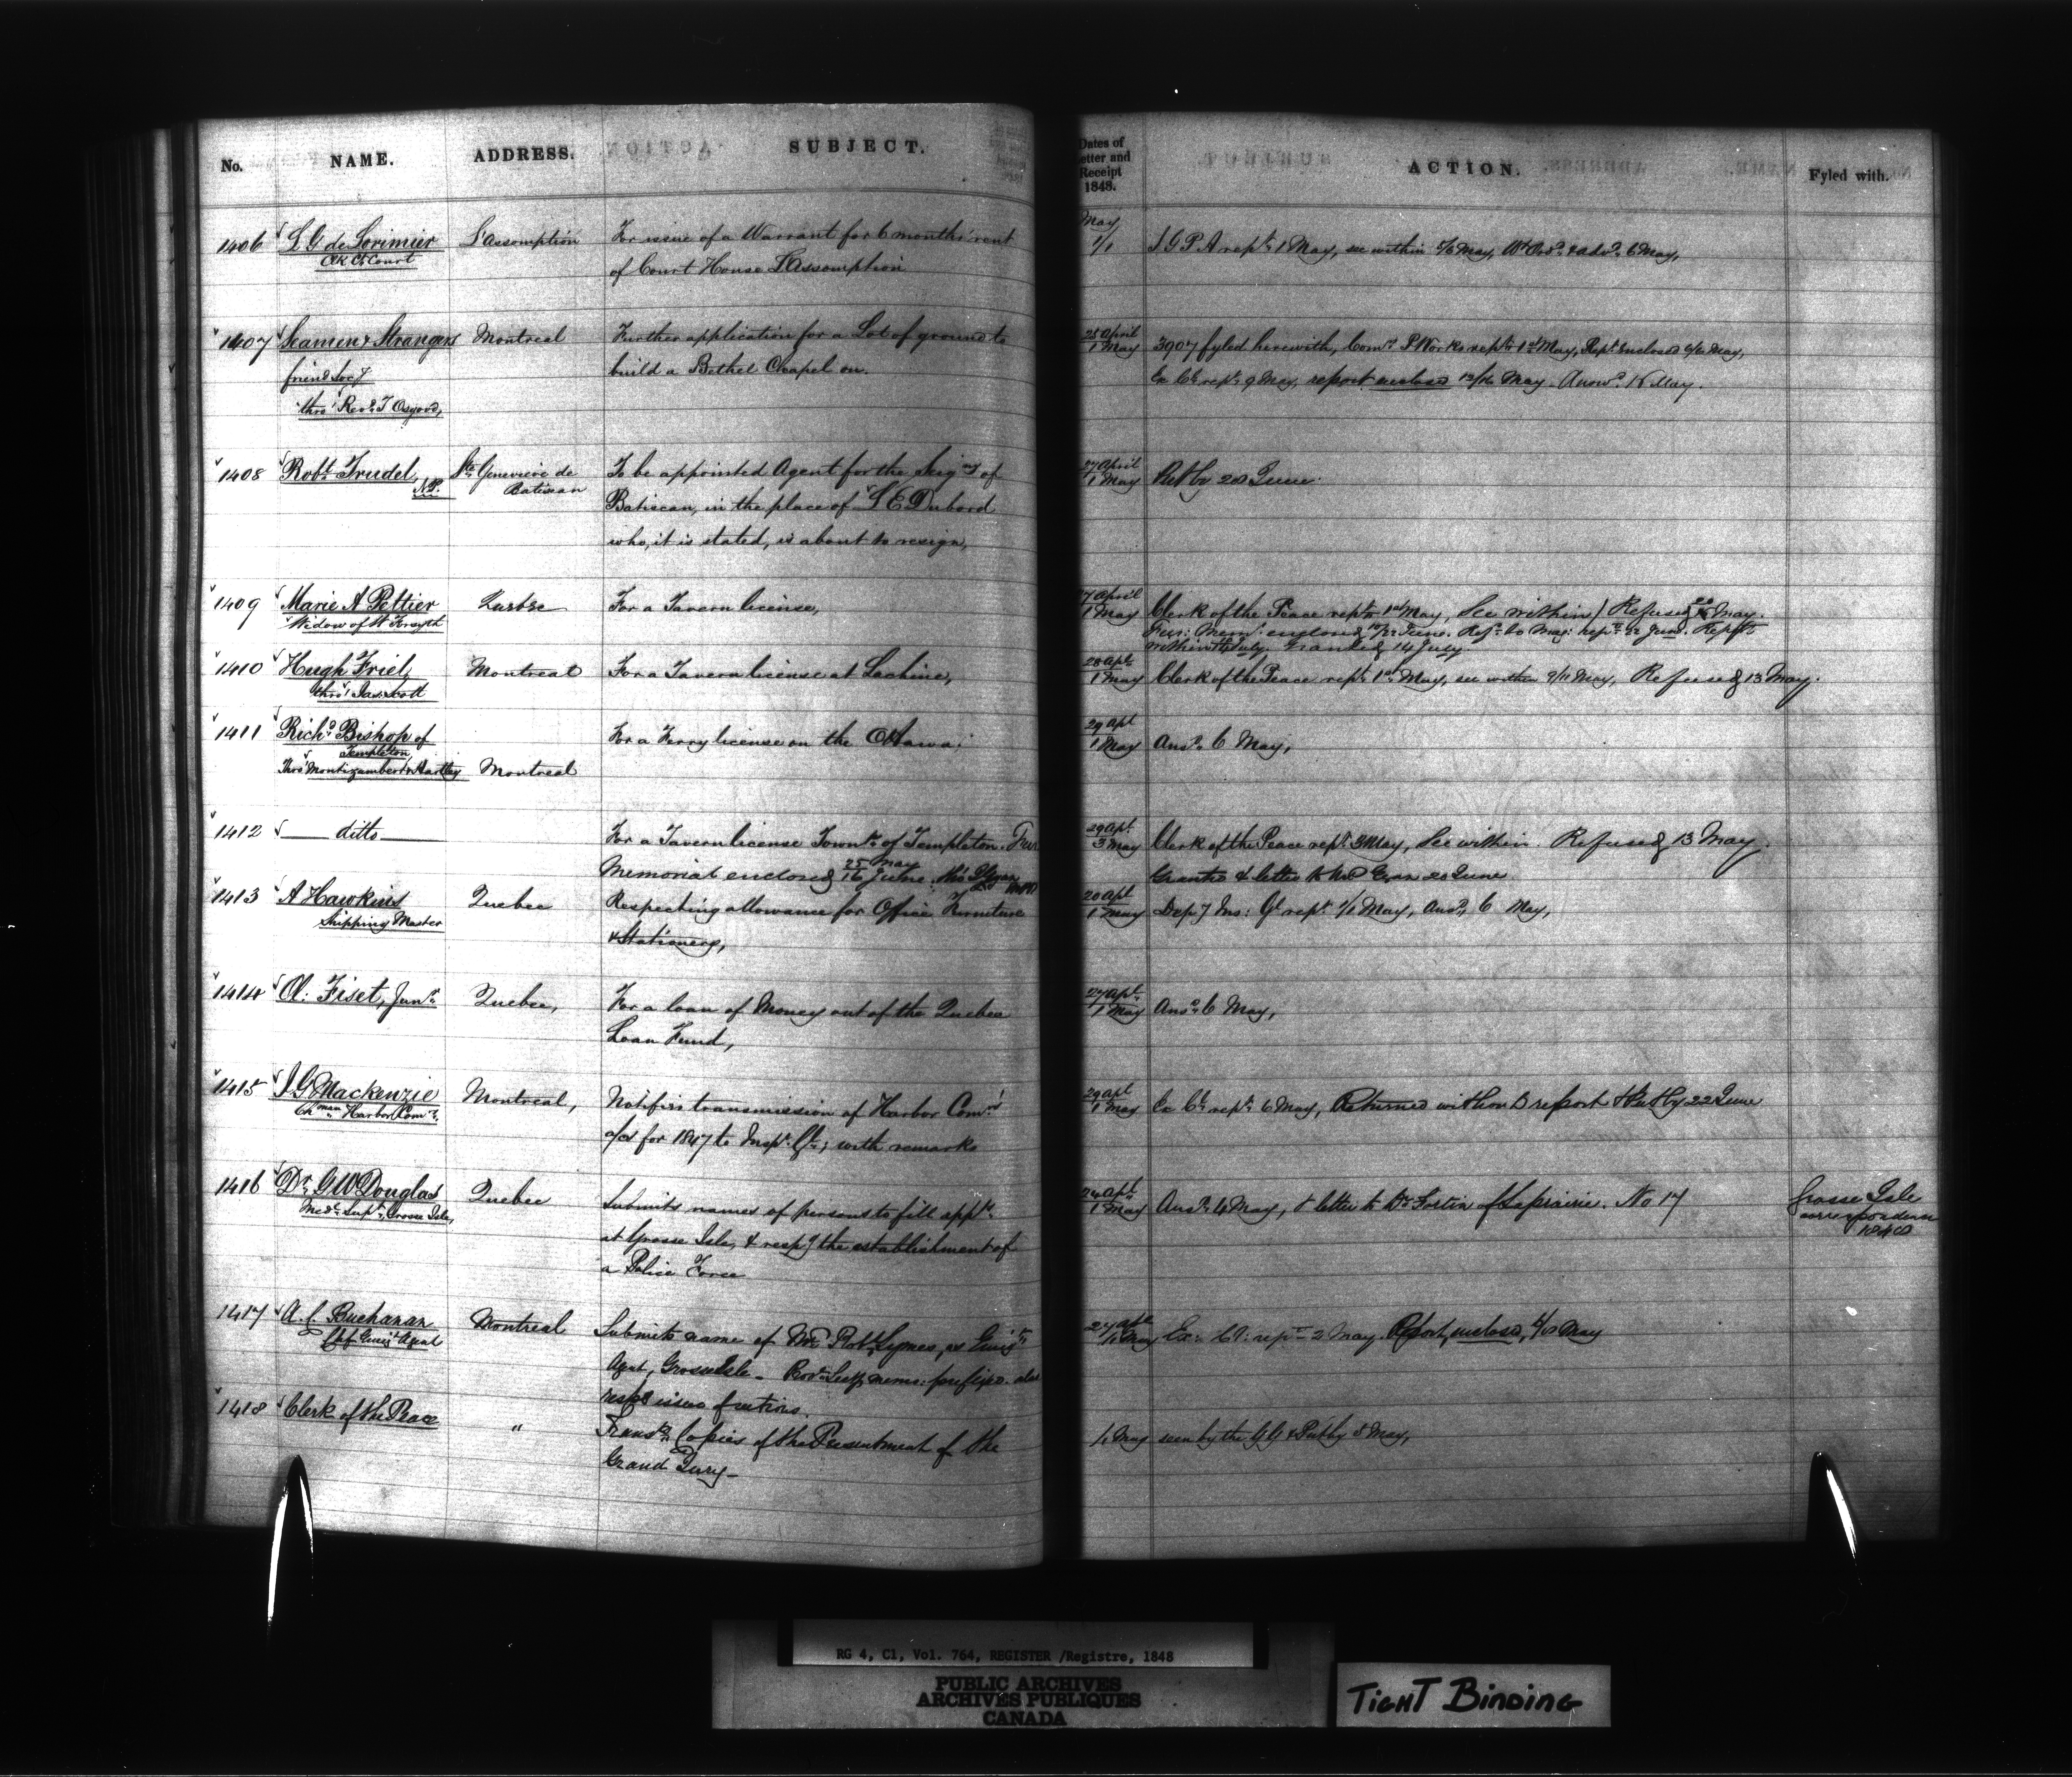 No. NAME. ADDRESS. SUBJECT. Dates of Letter and Receipt 1848. ACTION. Fyled with.
May
1406 L G de Lorimier L'assomption For issue of a Warrant for 6 months' rent 1/1 I G P A rept 1 May, see within 5/6 May, Wt Ord. & adv. 6 May,
Clk Ct Court of Court House L'Assomption
1407 Seamen & Strangers Montreal Further application for a Lot of ground to 25 April 1 May 3907 fyled herewith, Comrs P Works rept 1st May, Rept Enclosed 6/6 May,
friend Socy build a Bethel Chapel on. Ex Cl rept 9 May, report enclosed May. Answd. 18 May.
thro' Revd. T Osgood,
1408 Robt. Trudel, Ste Genevieve de To be appointed Agent for the Seigny of 27 April 1 May Put by 20 June.
N.P. Batiscan Batiscan, in the place of L E Dubord
who, it is stated, is about to resign,
1409 Marie A Peltier Quebec For a Tavern license, 27 April 1 May Clerk of the Peace rept 1st May, See within / Refused May.
Widow of W Forsyth Fur: Meml. enclosed June. Ref. to Mag: rept 22 June. Rept
within July. Granted 14 July
1410 Hugh Friel, Montreal For a Tavern license at Lachine, 28 Apl. 1 May Clerk of the Peace rept. 1st May, see within 9/11 May, Refused 13 May.
thro' Jas. Scott
1411 Richd. Bishop of For a Ferry license on the Ottawa: 29 Apl 1 May Ansd. 6 May,
Templeton
Thro' Montizambert & Hartley Montreal
1412 ditto For a Tavern license Townp. of Templeton. Fur 29 Apl. 3 May Clerk of the Peace rept. 3 May, See within. Refused 13 May.
Memorial enclosed 25 May 16 June, thro' Egan MPP Granted & letter to Mr Egan 20 June
1413 A Hawkins Quebec Respecting allowance for Office Furniture 20 Apl 1 May Depy Ins: Gl rept. 1/1 May, Ansd. 6 May,
Shipping Master & Stationery,
1414 Ol: Fiset, Junr. Quebec, For a loan of Money out of the Quebec 27 Apl. 1 May Ansd. 6 May,
Loan Fund,
1415 J G Mackenzie Montreal, Notifies transmission of Harbor Comrs' 29 Apl 1 May Ex Cl. rept. 6 May, Returned without report & Put by 22 June
Chman. Harbor Comr. a/cs for 1847 to Inspr. Gl.; with remarks
1416 Dr. G W Douglas Quebec Submits names of persons to fill appts. 24 Apl. 1 May Ansd. 4 May, & letter to Dr Fortin of Laprairie. No 17 Grosse Isle
Medl. Supt. Grosse Isle, at Grosse Isle, & respg the establishment of correspondence
a Police Force 1848
1417 A. C. Buchanan Montreal Submits name of Mr Robt. Symes, as Emigt. 27 Apl. 1 May Ex: Cl: rept 2 May. Report enclosed, 4/10 May
Chf. Emigt. Agent Agent, Grosse Isle - Secy mems: prefixed. also
respg issue of rations.
1418 Clerk of the Peace " Transts. Copies of the Presentment of the 1/1 May seen by the GG & Put by 5 May,
Grand Jury -
RG 4, C1, Vol. 764, REGISTER /Registre, 1848
PUBLIC ARCHIVES
ARCHIVES PUBLIQUES
CANADA
TIGHT BINDING